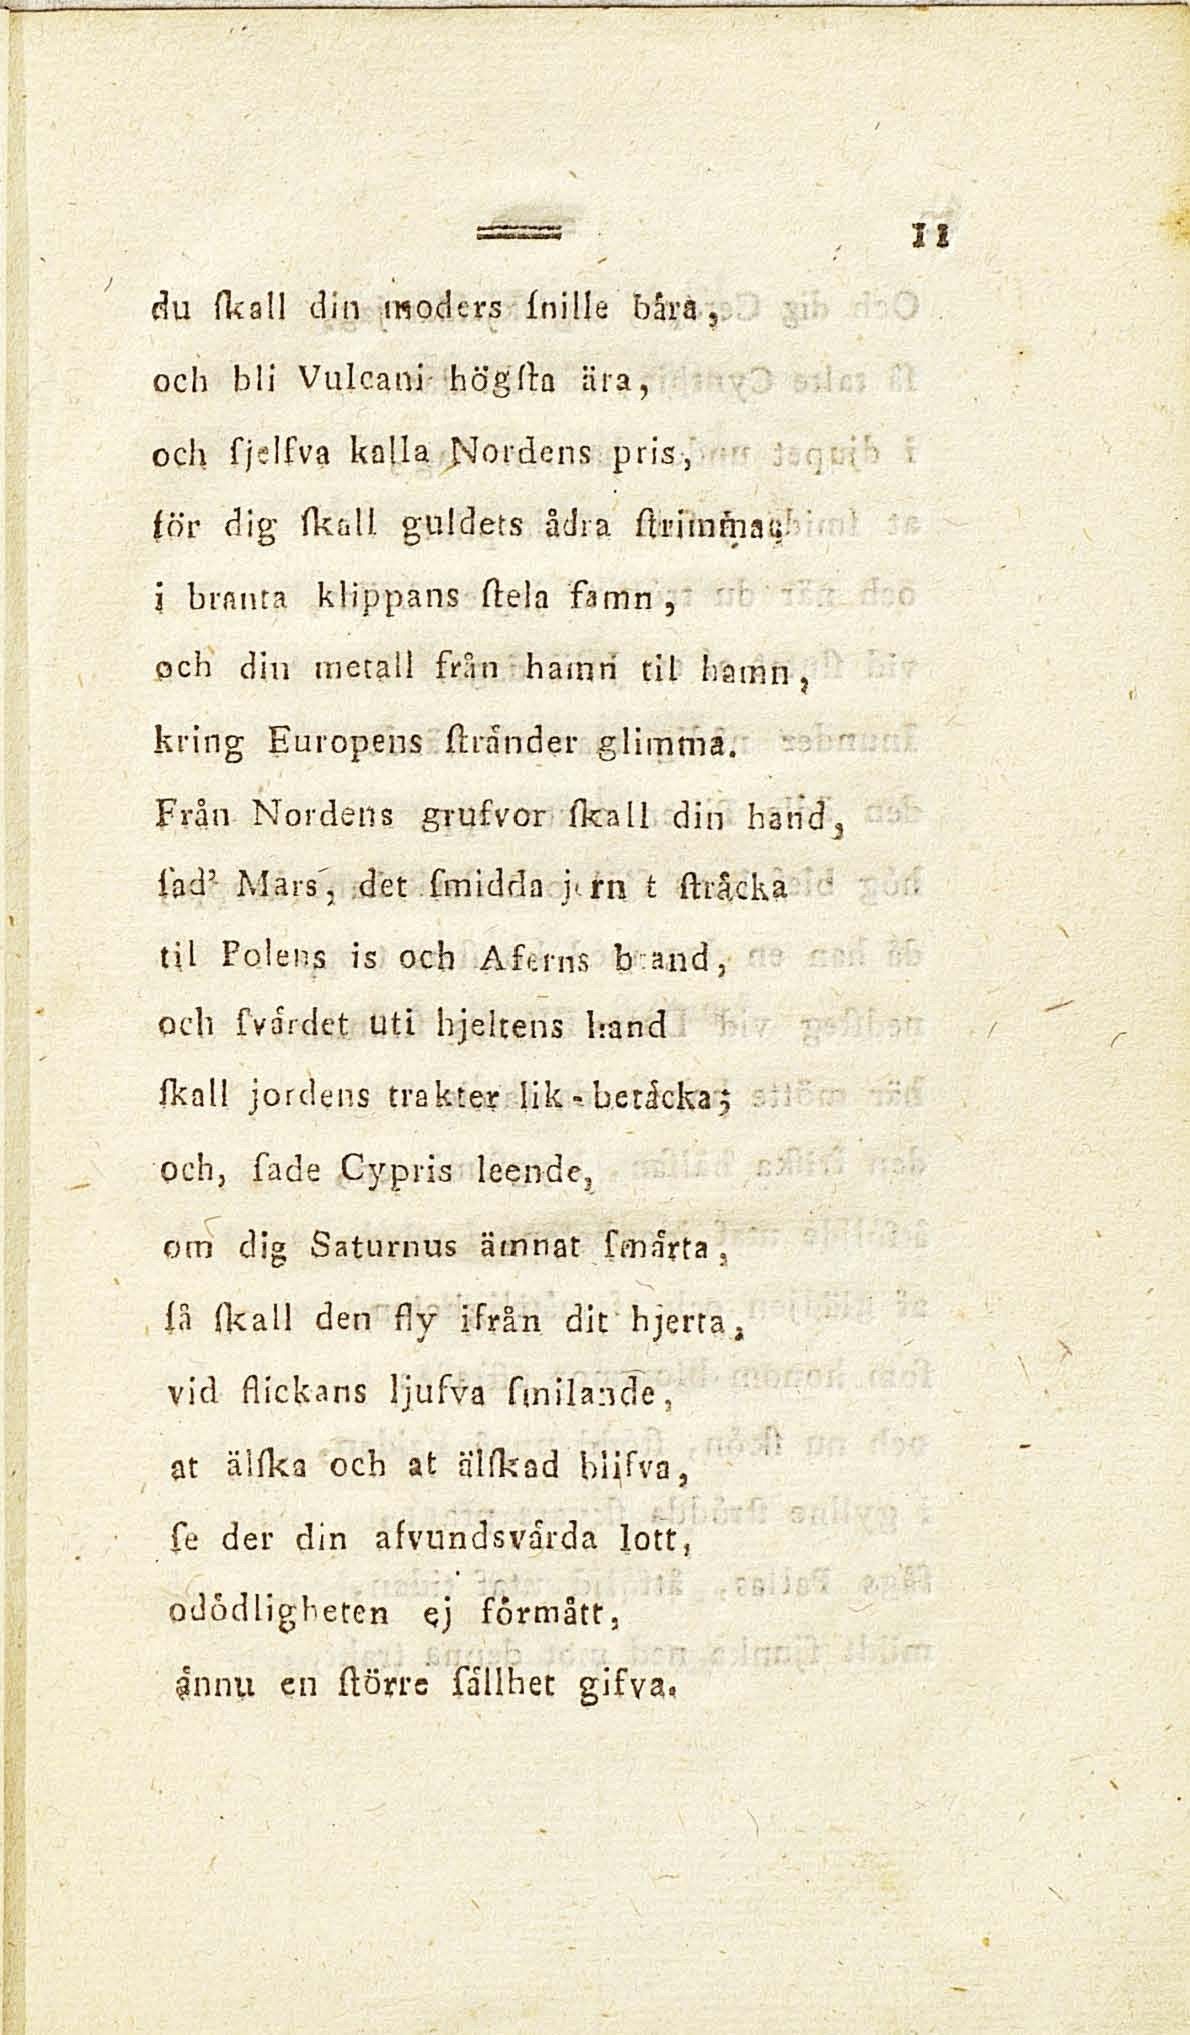 11
du ſkall din moders ſnille båra,
och bli Vulcani högſta ära,
och ſjelfva kalla Nordens pris,
för dig ſkall guldets ådra ſtrimma,
i branta klippans ſtela famn,
och din metall från hamn til hamn,
kring Europens ſtrånder glimma.
Från Nordens grufvor ſkall din hand,
ſad' Mars, det ſmidda jernet ſtråcka
til Polens is och Aferns brand,
och ſvårdet uti hjeltens hand
ſkall jordens trakter lik-betåcka;
och, ſade Cypris leende,
om dig Saturnus ämnat ſmårta,
ſå ſkall den fly ifrån dit hjerta,
vid flickans ljufva ſmilande,
at älſka och at älſkad blifva,
ſe der din afvundsvårda lott,
odödligheten ej förmått,
ånnu en ſtörre ſällhet gifva.